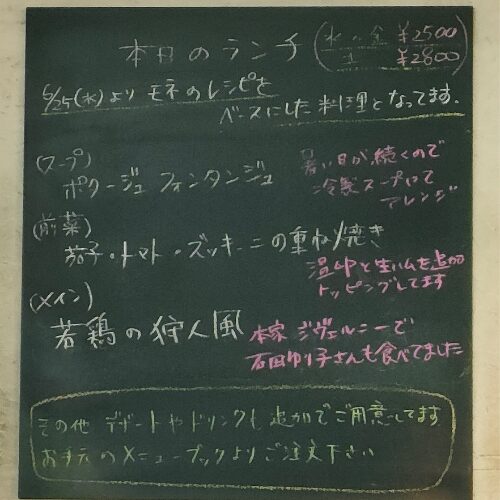 本日のランチ (水〜金 ¥2500
土 ¥2800)
6/25(水)より モネのレシピを
ベースにした料理となってます。
(スープ)
ポタージュ フォンタンジュ
暑い日が続くので
冷製スープにて
アレンジ
(前菜)
茄子・トマト・ズッキーニの重ね焼き
温卵と生ハムを追加
トッピングしてます
(メイン)
若鶏の狩人風
本家 ジヴェルニーで
石田ゆり子さんも食べてました
その他 デザートやドリンクも追加でご用意してます
お手元のメニューブックよりご注文下さい